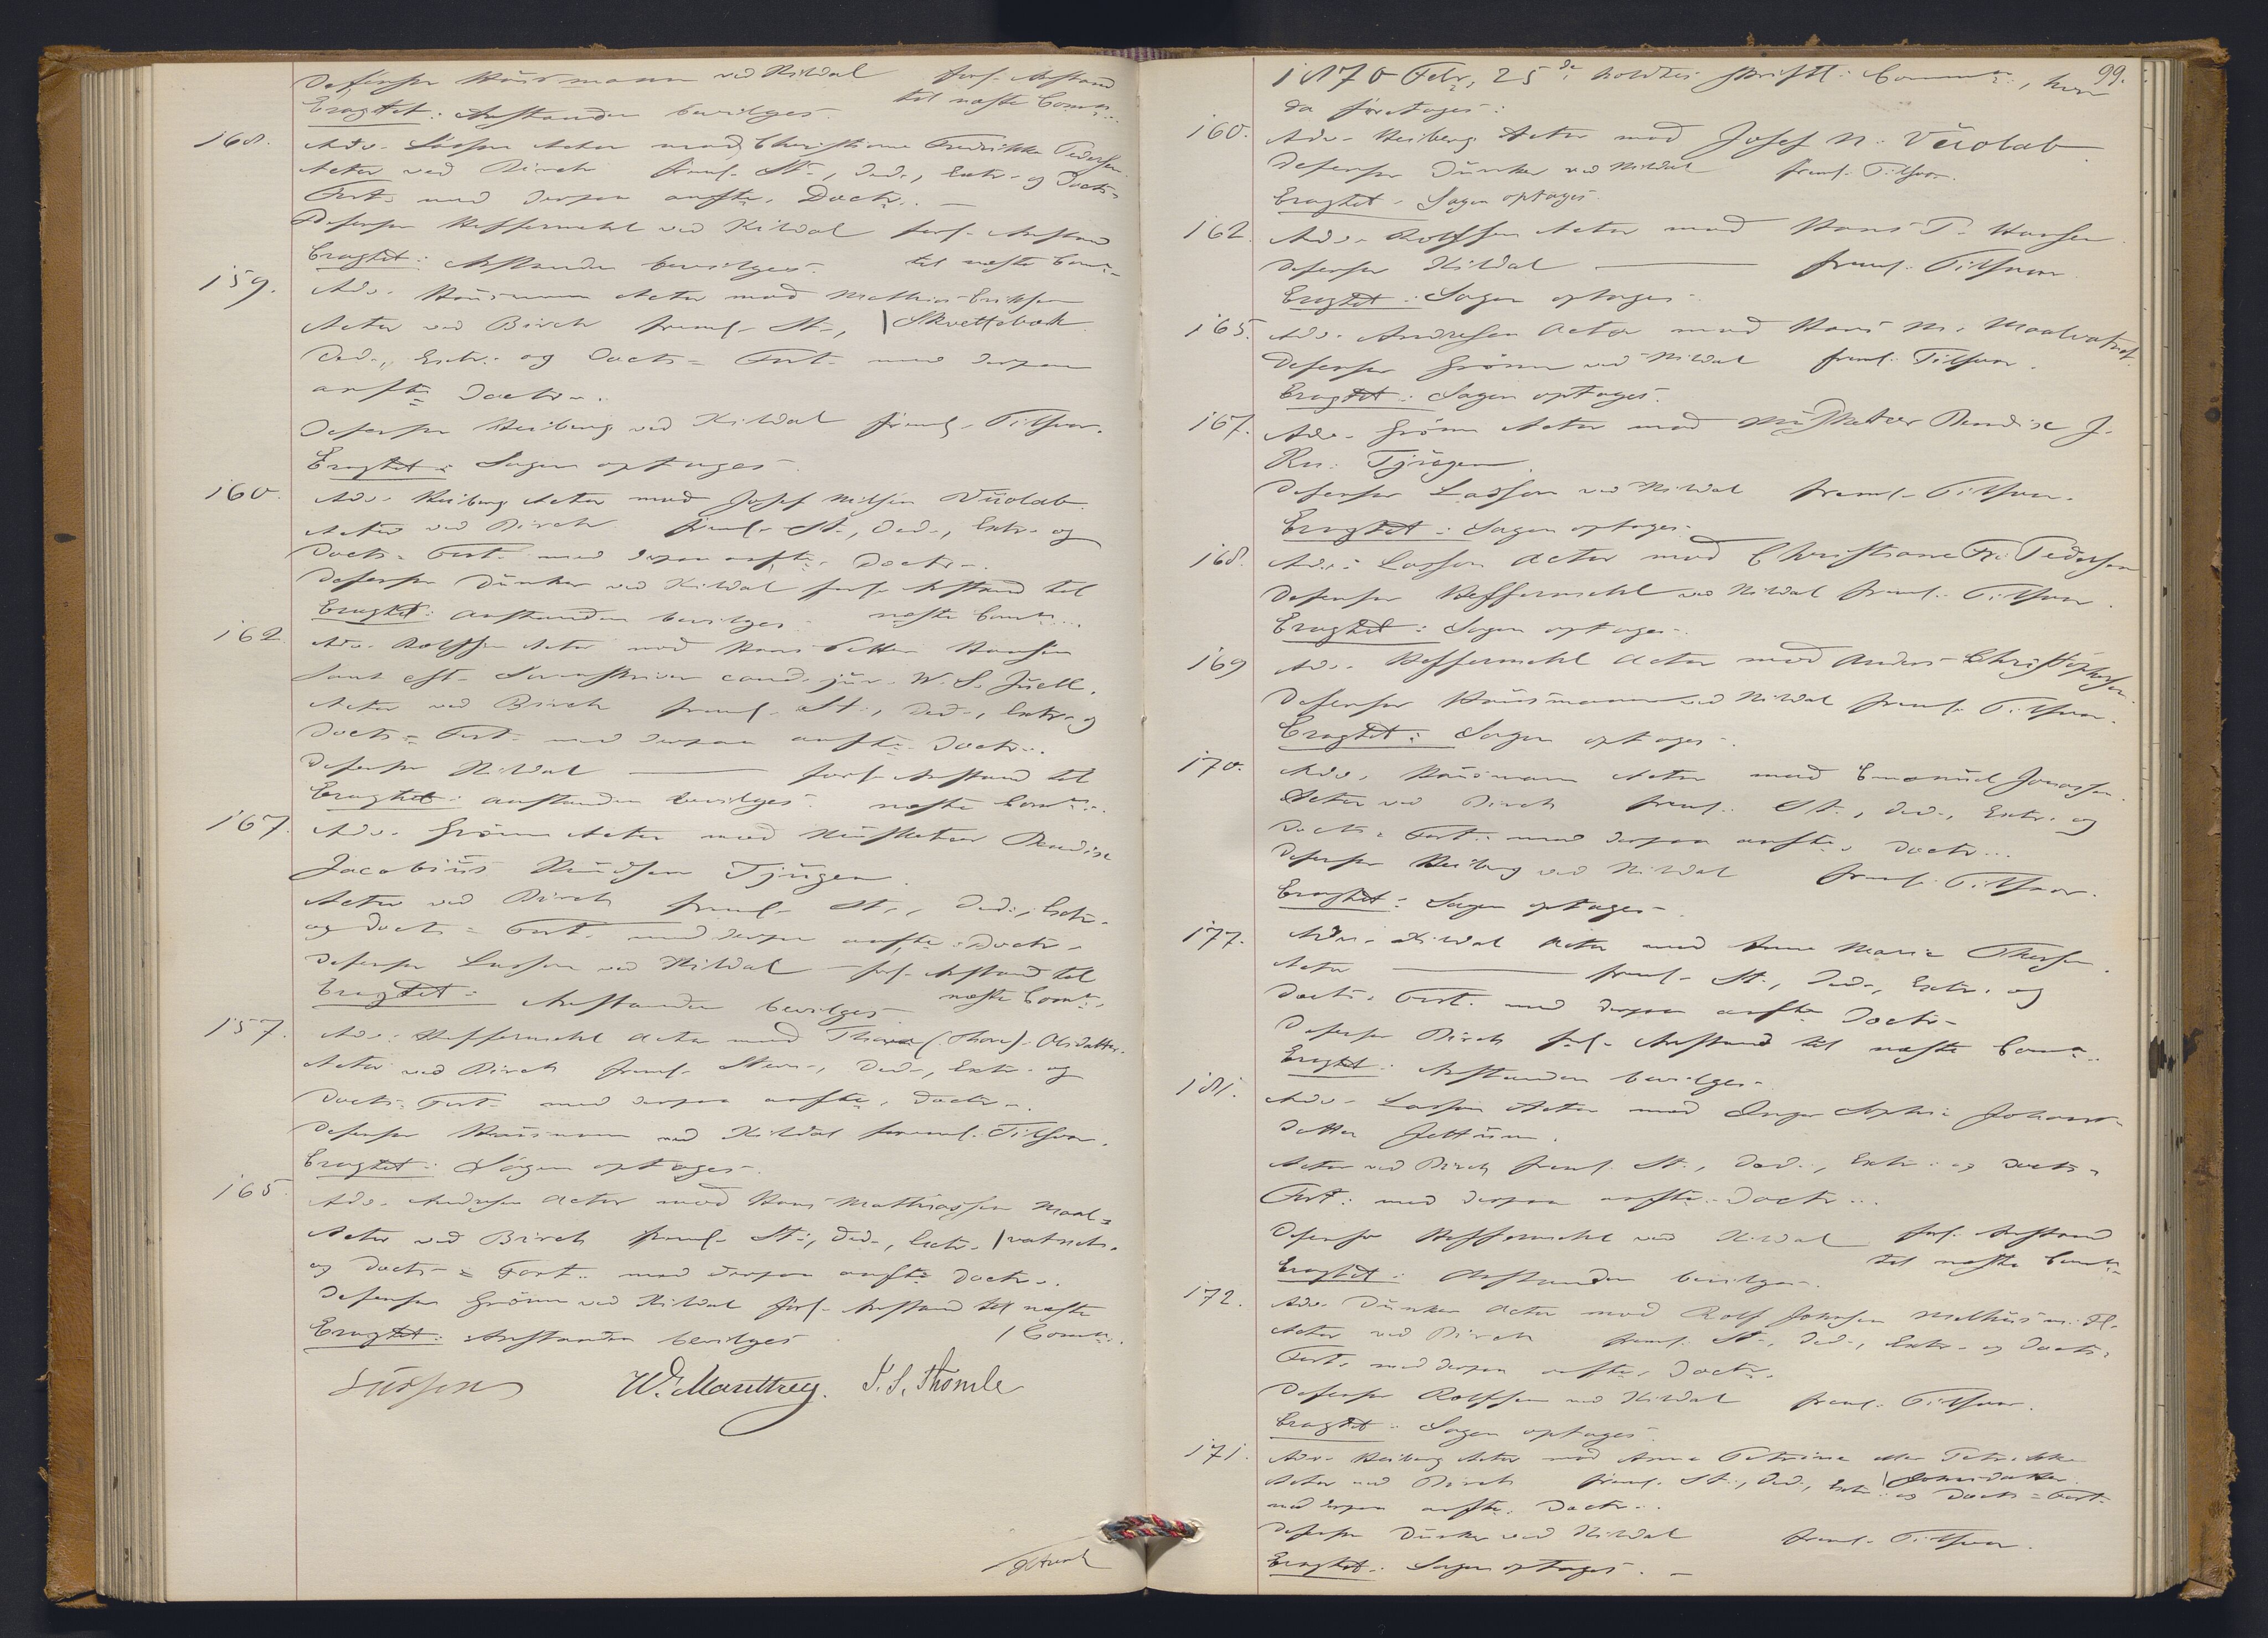 Defensor Huusmann ved Kildal forl. Anstand
Eragtet: Anstanden bevilges. til næste Comm.
168. Adv. Lasson Actor mod Christiane Fredrikke Pedersen.
Actor ved Birch freml. St., Ded., Extr. og Docts.
Fort. med derpaa anfte. Doctr. —
Defensor Heffermehl ved Kildal forl. Anstand
Eragtet: Anstanden bevilges. til næste Comm.
159. Adv. Huusmann Actor mod Mathias Eriksen
Actor ved Birch freml. St., | Skrettebæk
Ded., Extr. og Docts = Fort. med derpaa
anfte Doctr.
Defensor Heiberg ved Kildal freml. Tilsvar.
Eragtet: Sagen optages.
160. Adv. Heiberg Actor mod Josef Nilsen Vüolab
Actor ved Birch freml. St., Ded., Extr. og
Docts = Fort. med derpaa anfte. Doctr.
Defensor Dunker ved Kildal forl. Anstand til
Eragtet: Anstanden bevilges. næste Comm.
162. Adv. Rolffsen Actor mod Hans Petter Hansen
samt cst. Sorenskriver cand. jur. W. S. Juell.
Actor ved Birch freml. St., Ded., Extr. og
Docts = Fort. med derpaa anfte Doctr.
Defensor Kildal — forl. Anstand til
Eragtet: Anstanden bevilges. næste Comm.
167. Adv. Grönn Actor mod Musketeer Bendix
Jacobius Knudsen Tjügen.
Actor ved Birch freml. St., Ded., Extr.
og Docts = Fort. med derpaa anfte. Doctr.
Defensor Lasson ved Kildal forl. Anstand til
Eragtet: Anstanden bevilges næste Comm.
157. Adv. Heffermehl Actor mod (Thore) Olsdatter.
Actor ved Birch freml. Stevn., Ded., Extr. og
Docts = Fort. med derpaa anfte. Doctr.
Defensor Huusmann ved Kildal freml. Tilsvar.
Eragtet: Sagen optages.
165. Adv. Andresen Actor mod Hans Mathiassen Maal=
Actor ved Birch freml. St., Ded., Extr. | vatnet.
og Docts = Fort. med derpaa anfte Doctr.
Defensor Grönn ved Kildal forl. Anstand til næste
Eragtet: Anstanden bevilges / Comm.
Lasson W. Manthey. J. S. Thomle
1870 Febr. 25de holdtes skriftl: Comm., hvor 99.
da foretoges:
160. Adv. Heiberg Actor mod Josef N. Vüolab
Defensor Dunker ved Kildal freml. Tilsvar.
Eragtet. Sagen optages.
162. Adv. Rolffsen Actor mod Hans P. Hansen
Defensor Kildal — freml. Tilsvar
Eragtet: Sagen optages.
165. Adv. Andresen Actor mod Hans M. Maalvatnet.
Defensor Grönn ved Kildal freml. Tilsvar.
Eragtet: Sagen optages.
167. Adv. Grönn Actor mod Musketeer Bendix J.
Kn. Tjügen.
Defensor Lasson ved Kildal freml. Tilsvar.
Eragtet: Sagen optages.
168. Adv. Lasson Actor mod Christiane Fr. Pedersen
Defensor Heffermehl ved Kildal freml. Tilsvar.
Eragtet: Sagen optages.
169 Adv. Heffermehl Actor mod Anders Christophersen.
Defensor Huusmann ved Kildal freml. Tilsvar.
Eragtet: Sagen optages.
170. Adv. Huusmann Actor mod Emanuel Jonassen.
Actor ved Birch freml. St., Ded., Extr. og
Docts = Fort. med derpaa anfte. Doctr.
Defensor Heiberg ved Kildal freml. Tilsvar.
Eragtet: Sagen optages.
177. Adv. Kildal Actor mod Anne Marie Thorsen.
Actor — freml. St., Ded., Extr. og
Docts. Fort. med derpaa anfte Doctr.
Defensor Birch forl. Anstand til næste Comm.
Eragtet: Anstanden bevilges.
181. Adv. Lasson Actor mod Inger Sophie Johans-
datter Jettum.
Actor ved Birch freml. St., Ded., Extr. og Docts =
Fort. med derpaa anfte. Doctr.
Defensor Heffermehl ved Kildal forl. Anstand
Eragtet: Anstanden bevilges. til næste Comm.
172. Adv. Dunker Actor mod Rolf Johnsen Melhus m. Fl.
Actor ved Birch freml. St., Ded., Extr. og Docts =
Fort. med derpaa anfte. Doctr.
Defensor Rolffsen ved Kildal freml. Tilsvar.
Eragtet: Sagen optages.
171. Adv. Heiberg Actor mod Anne Petrine eller Petrikke
Actor ved Birch freml. St., Ded., Extr. og Docts = Fort.
med derpaa anfte. Doctr.
Defensor Dunker ved Kildal freml. Tilsvar.
Eragtet: Sagen optages. —